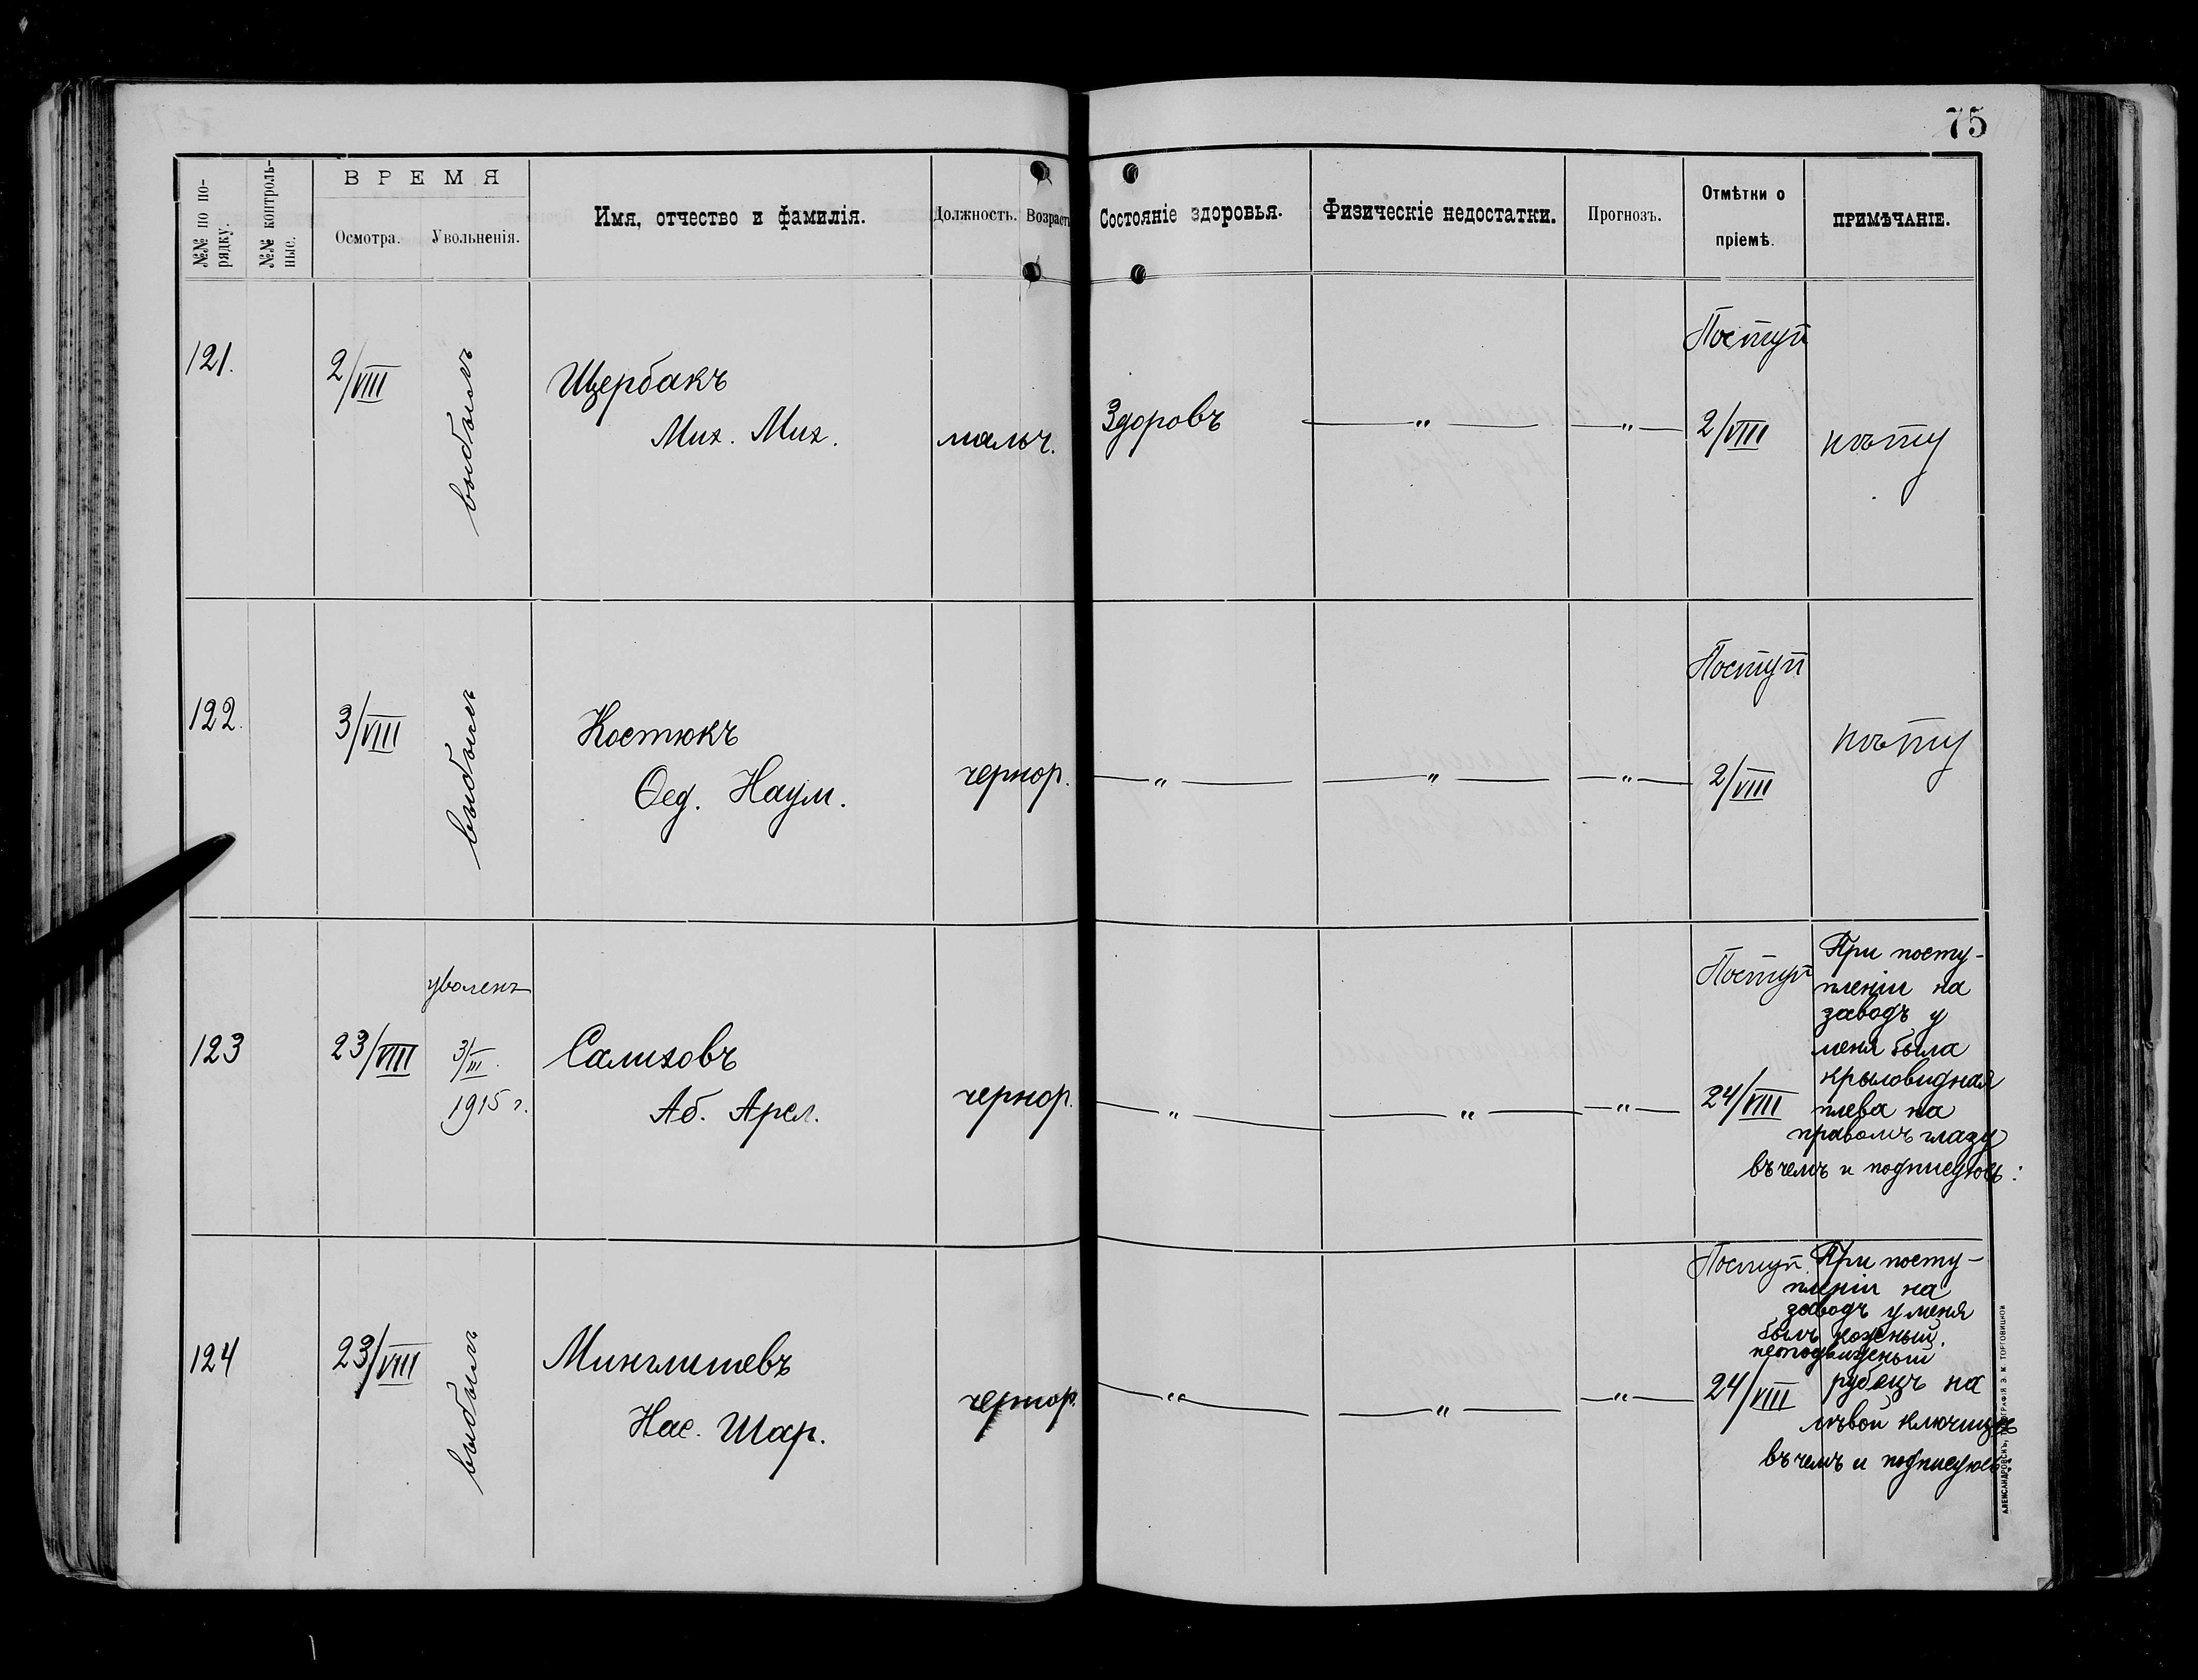 75
№№ по по-
рядку.
№№ контроль-
ные.
ВРЕМЯ
Осмотра.
Увольненія.
Имя, отчество и фамилія.
Должность.
Возрастъ
Состояніе здоровья.
Физическіе недостатки.
Прогнозъ.
Отмѣтки о
пріемѣ.
ПРИМѢЧАНІЕ.
121.
2/VIII
выбылъ
Щербакъ
Мих. Мих.
мальч.
Здоровъ
— " —
— " —
Поступ
2/VIII
нѣту
122.
3/VIII
выбылъ
Костюкъ
Ѳед. Наум.
чернор.
— " —
— " —
— " —
Поступ
2/VIII
нѣту
123
23/VIII
уволенъ
3/III.
1915 г.
Салиховъ
Аб. Арсл.
чернор.
— " —
— " —
— " —
Поступ
24/VIII
При посту-
пленіи на
заводъ у
меня была
крыловидная
плева на
правомъ глазу
въ чемъ и подписуюсь:
124
23/VIII
выбылъ
Минглишевъ
Нас. Шар.
чернор.
— " —
— " —
— " —
Поступ.
24/VIII
При посту-
пленіи на
заводъ у меня
былъ кожный
неподвижный
рубецъ на
лѣвой ключицѣ
въ чемъ и подписуюсь:
АЛЕКСАНДРОВСКЪ, ТИПОГРАФІЯ Э. М. ТОРГОВИЦКОВ